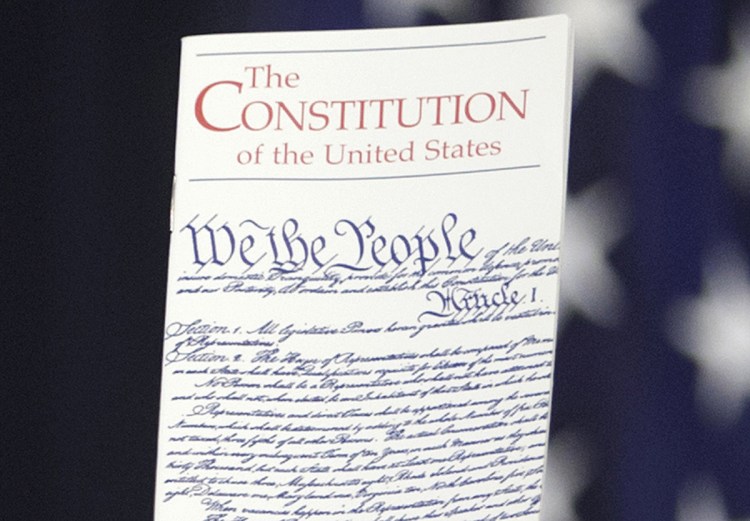 The
CONSTITUTION
of the United States
We the People of the
insure domestic Tranquility, provide for the common defence,
and our Posterity, do ordain and establish this Constitution for the
Article I.
Section 1. All legislative Powers herein granted shall be vested in
of Representatives.
Section 2. The House of Representatives shall be composed of
in each State shall have Qualifications requisite for Electors of the most
No Person shall be a Representative who shall not have attained
and who shall not, when elected, be an Inhabitant of that State in which
Representatives and direct Taxes shall be apportioned among the
Numbers, which shall be determined by adding to the whole Number of free
not taxed, three fifths of all other Persons. The actual Enumeration shall
and within every subsequent Term of ten Years, in such Manner as they
thirty Thousand, but each State shall have at Least one Representative;
entitled to chuse three, Massachusetts eight, Rhode Island and
eight, Delaware one, Maryland six, Virginia ten, North Carolina five,
When vacancies happen in the Representation from any State, the